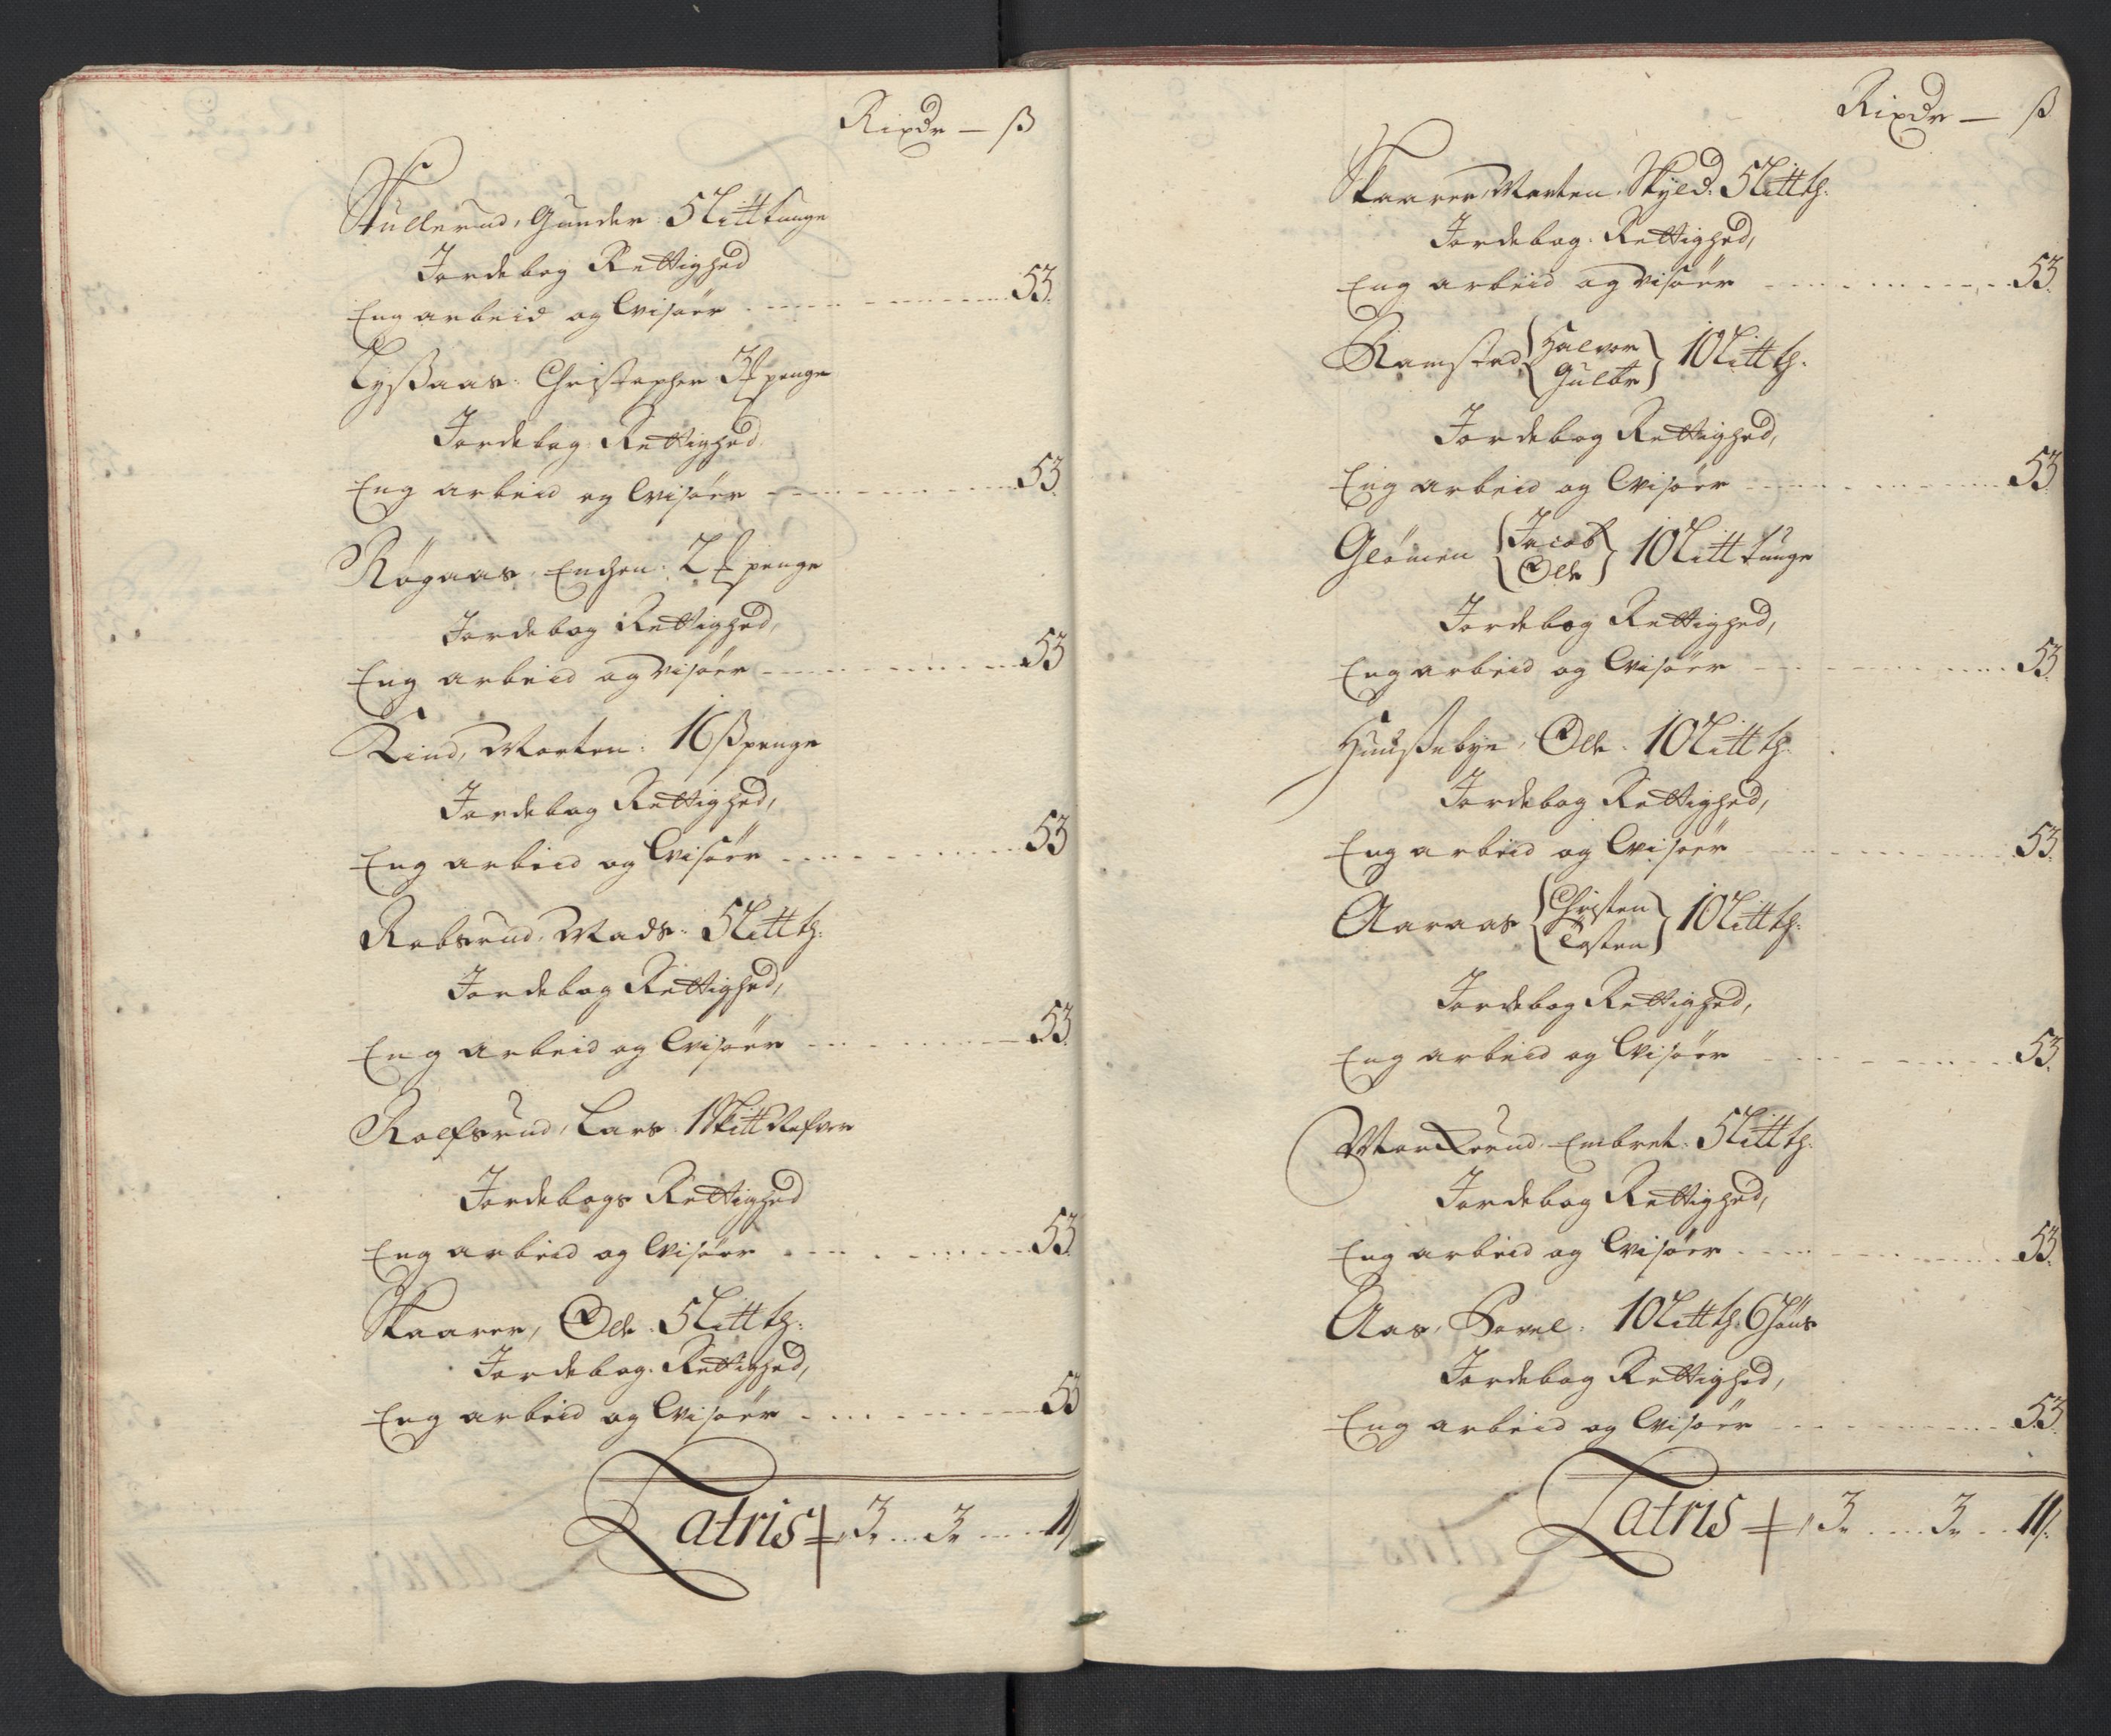 Rixdr — ß
Skullerud, Gunder. 5 Litt tunge
Jordebog Rettighed
Eng arbeid og Wisöer 53.
Lyßaas. Christopher 3 ₰ penge
Jordebog Rettighed
Eng arbeid og Wisöer 53.
Røgaas. Enchen: 2 ₰ penge
Jordebog Rettighed,
Eng arbeid og Wisöer 53
Rind, Morten: 16 ß penge
Jordebog Rettighed,
Eng arbeid og Wisöer 53
Robsrud. Mads: 5 Litt tz:
Jordebog Rettighed,
Eng arbeid og Wisöer 53.
Rolfsrud, Lars. 1 Skitt Refver
Jordebogs Rettighed
Eng arbeid og Wisöer 53.
Skaarer, Ole. 5 Litt tz:
Jordebog Rettighed,
Eng arbeid og Wisöer 53
Latris 3 3 11/
Rixdr — ß
Skaarer, Morten. Skyld. 5 Litt tz:
Jordebog Rettighed,
Eng arbeid og Wisöer 53.
Ramstad Halvor Gulbr 10 Litt tz.
Jordebog Rettighed,
Eng arbeid og Wisöer 53
Glömen Jacob Ole 10 Litt tunge
Jordebog Rettighed,
Eng arbeid og Wisöer 53.
Huußebye, Ole. 10 Litt tz.
Jordebog Rettighed,
Eng arbeid og Wisöer 53.
Aaraas Christen Tosten 10 Litt tz.
Jordebog Rettighed,
Eng arbeid og Wisöer 53.
Morterud Embret. 5 Litt tz.
Jordebog Rettighed,
Eng arbeid og Wisöer 53.
Aas, Povel: 10 Litt tz. 6 Høns
Jordebog Rettighed,
Eng arbeid og Wisöer 53.
Latris 3 3 11/.